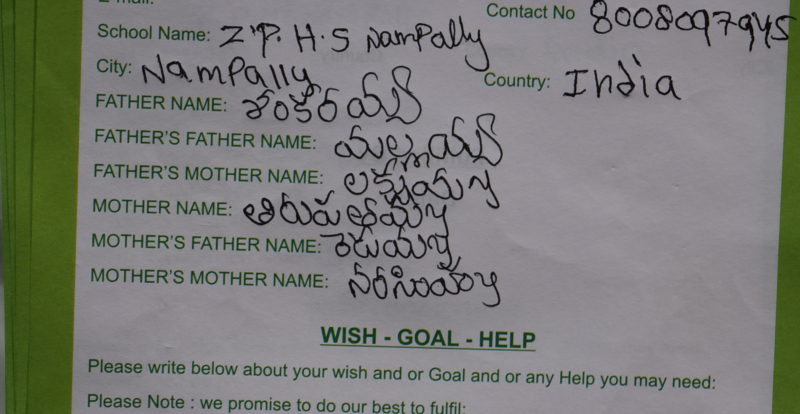 E-mail:
Contact No 8008097945
School Name: Z.P.H.S Nampally
City: Nampally
Country: India
FATHER NAME: శంకరయ్య
FATHER'S FATHER NAME: మల్లయ్య
FATHER'S MOTHER NAME: లక్ష్మమ్మ
MOTHER NAME: తిరుపతమ్మ
MOTHER'S FATHER NAME:
MOTHER'S MOTHER NAME: నరసింహ్మ
WISH - GOAL - HELP
Please write below about your wish and or Goal and or any Help you may need:
Please Note : we promise to do our best to fulfil: